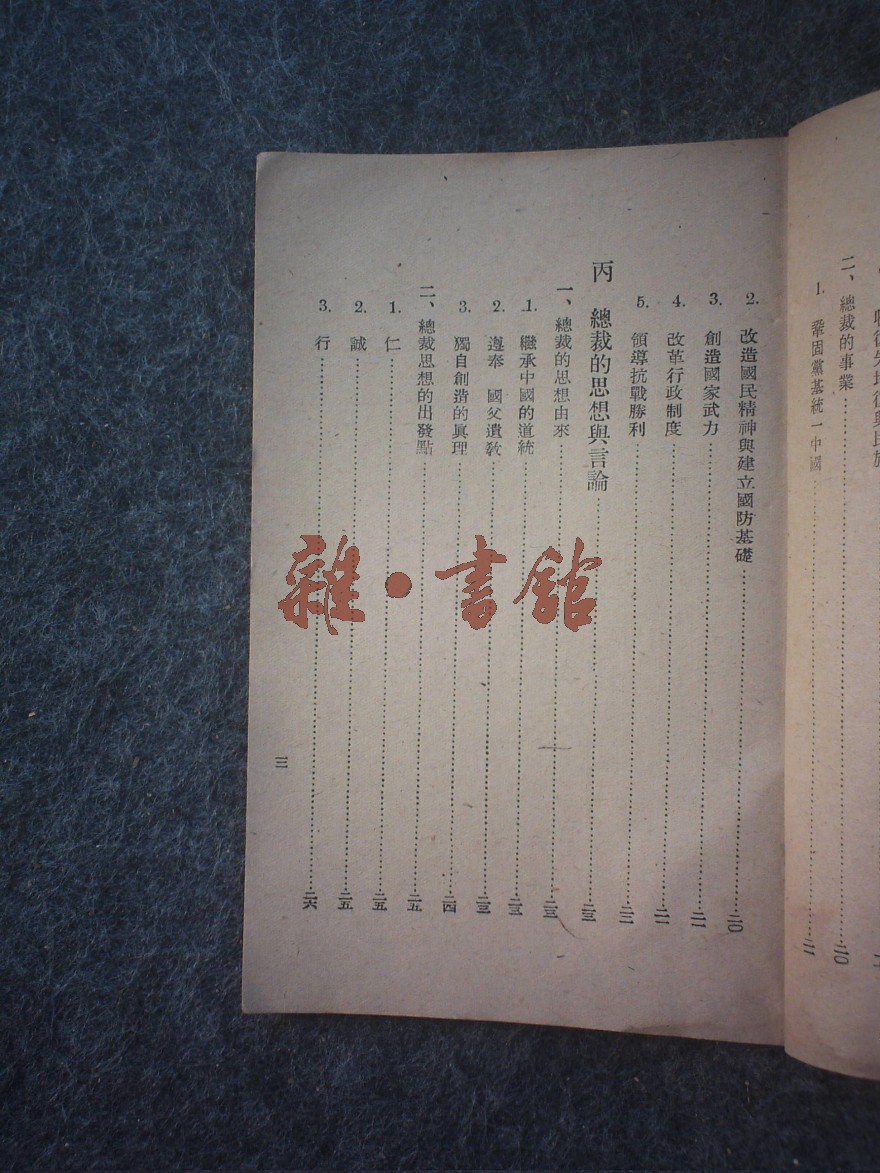 二、總裁的事業……二〇
1. 鞏固黨基統一中國……二一
2. 改造國民精神與建立國防基礎……二〇
3. 創造國家武力……二一
4. 改革行政制度……二一
5. 領導抗戰勝利……二二
丙 總裁的思想與言論……二三
一、總裁的思想由來……二三
1. 繼承中國的道統……二三
2. 遵奉 國父遺教……二三
3. 獨自創造的眞理……二四
二、總裁思想的出發點……二五
1. 仁……二五
2. 誠……二五
3. 行……二六
三
雜·書館